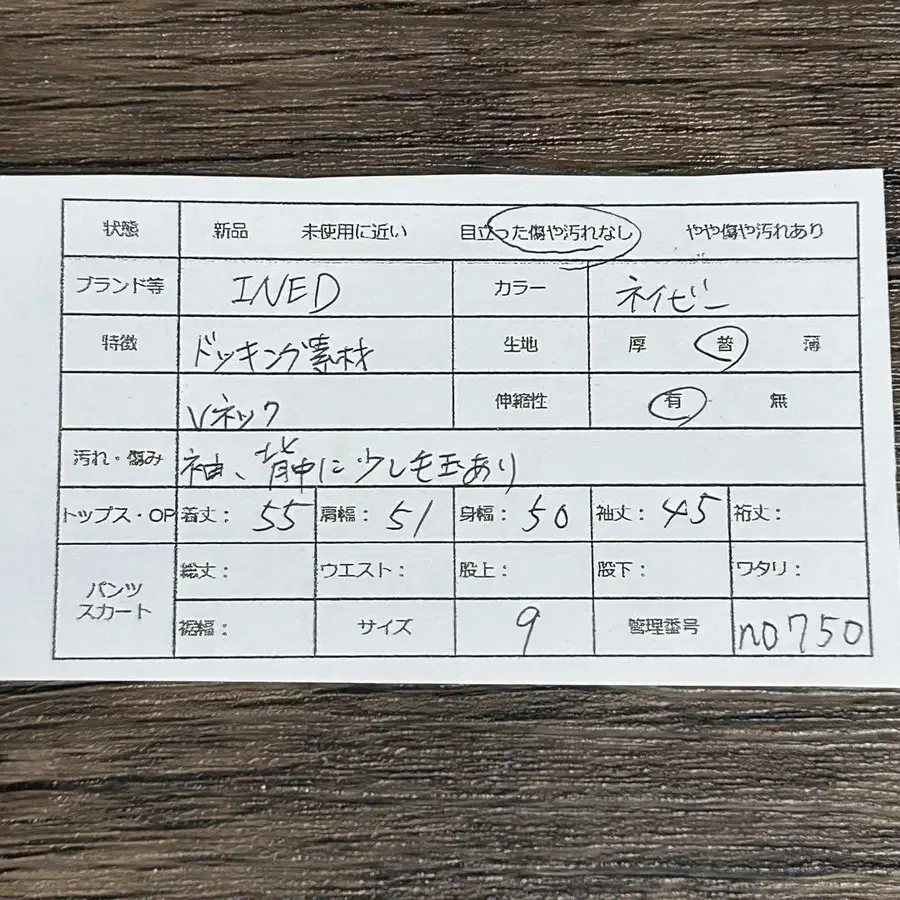 状態 新品 未使用に近い 目立った傷や汚れなし やや傷や汚れあり
ブランド等 INED カラー ネイビー
特徴 ドッキング素材 生地 厚 普 薄
Vネック 伸縮性 有 無
汚れ・傷み 袖、背中に少し毛玉あり
トップス・OP 着丈: 55 肩幅: 51 身幅: 50 袖丈: 45 裄丈:
パンツ スカート 総丈: ウエスト: 股上: 股下: ワタリ:
裾幅: サイズ 9 管理番号 no750